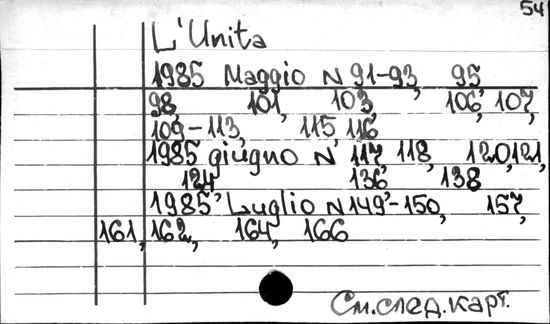 54
L'Unita
1985 Maggio N 91-93, 95
98, 101, 103, 106, 107,
109-113, 115, 116
1985 giugno N 117, 118, 120, 121,
124, 136, 138
1985, Luglio N 149-150, 157,
161, 162, 164, 166
См. след. карт.